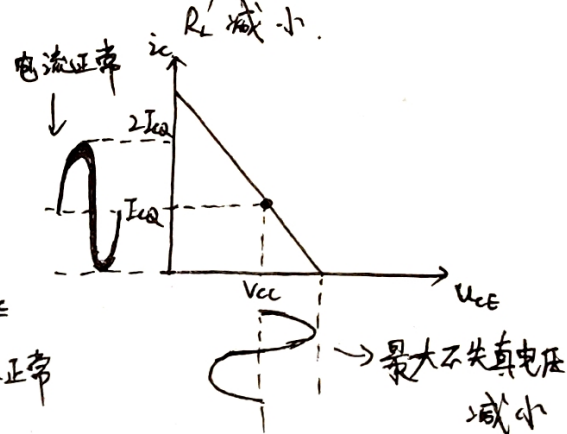 RL' 减小.
电流正常
ic
2ICQ
ICQ
VCC
uCE
正常
→最大不失真电压
减小